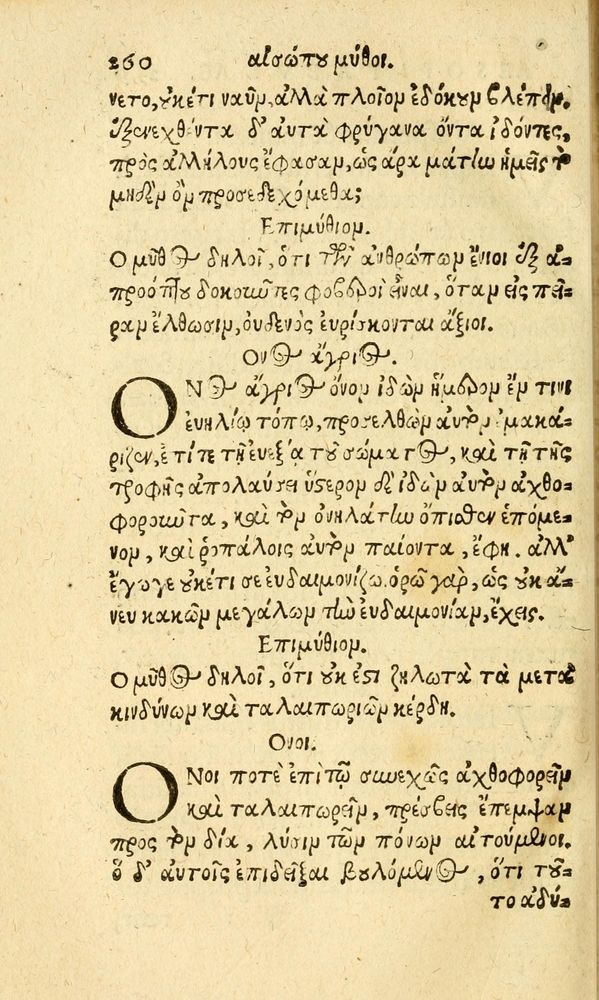 260 αἰσώπου μῦθοι.
νετο, οὐκέτι ναῦν, ἀλλὰ πλοῖον ἐδόκουν βλέπειν.
ἐξενεχθέντα δ' αὐτὰ φρύγανα ὄντα ἰδόντες,
πρὸς ἀλλήλους ἔφασαν, ὡς ἄρα μάτην ἡμεῖς τὸ
μηδὲν ὂν προσεδεχόμεθα;
Επιμύθιον.
Ο μῦθος δηλοῖ, ὅτι τῶν ἀνθρώπων ἔνιοι ἐξ ἀ-
προόπτου δοκοῦντες φοβεροὶ εἶναι, ὅταν εἰς πεῖ-
ραν ἔλθωσιν, οὐδενὸς εὑρίσκονται ἄξιοι.
Ονος ἄγριος.
ΟΝος ἄγριος ὄνον ἰδὼν ἥμερον ἔν τινι
εὐηλίῳ τόπῳ, προσελθὼν αὐτὸν ἐμακά-
ριζεν, ἐπί τε τῇ εὐεξίᾳ τοῦ σώματος, καὶ τῇ τῆς
τροφῆς ἀπολαύσει ὕστερον δὲ ἰδὼν αὐτὸν ἀχθο-
φοροῦντα, καὶ τὸν ὀνηλάτην ὄπιθεν ἑπόμε-
νον, καὶ ῥοπάλοις αὐτὸν παίοντα, ἔφη. ἀλλ'
ἔγωγε οὐκέτι σε εὐδαιμονίζω. ὁρῶ γὰρ, ὡς οὐκ ἄ-
νευ κακῶν μεγάλων τὴν εὐδαιμονίαν, ἔχεις.
Επιμύθιον.
Ο μῦθος δηλοῖ, ὅτι οὐκ ἔστι ζηλωτὰ τὰ μετὰ
κινδύνων καὶ ταλαιπωριῶν κέρδη.
Ονοι.
ΟΝοι ποτὲ ἐπὶ τῷ συνεχῶς ἀχθοφορεῖν
καὶ ταλαιπωρεῖν, πρέσβεις ἔπεμψαν
πρὸς τὸν δία, λύσιν τῶν πόνων αἰτούμενοι.
ὁ δ' αὐτοῖς ἐπιδεῖξαι βουλόμενος, ὅτι τοῦ-
το ἀδύ-